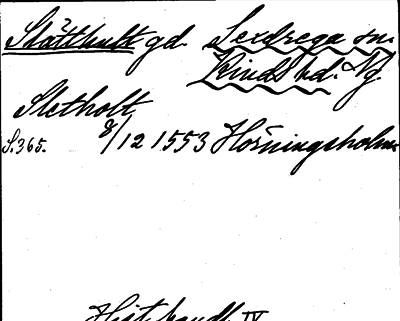 Slätthult gd. Sexdrega sn.
Kinds hd. Vg
Sletholt
S.365. 8/12 1553 Hörningsholm
Hist. handl. IV